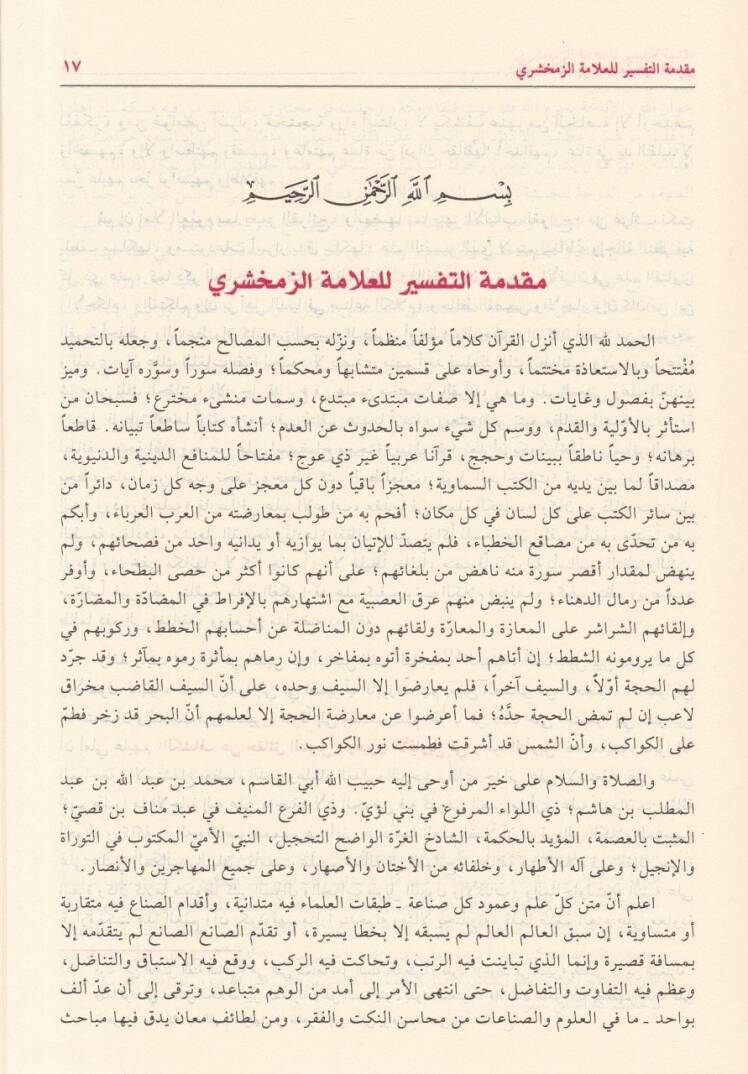 مقدمة التفسير للعلامة الزمخشري
١٧
بِسْمِ اللَّهِ الرَّحْمَٰنِ الرَّحِيمِ
مقدمة التفسير للعلامة الزمخشري
الحمد لله الذي أنزل القرآن كلاماً مؤلفاً منظماً، ونزّله بحسب المصالح منجماً، وجعله بالتحميد
مُفْتتحاً وبالاستعاذة مختتماً، وأوحاه على قسمين متشابهاً ومحكماً؛ وفصله سوراً وسوَّره آيات. وميز
بينهنّ بفصول وغايات. وما هي إلا صفات مبتدىء مبتدع، وسمات منشىء مخترع؛ فسبحان من
استأثر بالأوّلية والقدم، ووسم كل شيء سواه بالحدوث عن العدم؛ أنشأه كتاباً ساطعاً تبيانه. قاطعاً
برهانه؛ وحياً ناطقاً ببينات وحجج، قرآنا عربياً غير ذي عوج؛ مفتاحاً للمنافع الدينية والدنيوية،
مصداقاً لما بين يديه من الكتب السماوية؛ معجزاً باقياً دون كل معجز على وجه كل زمان، دائراً من
بين سائر الكتب على كل لسان في كل مكان؛ أفحم به من طولب بمعارضته من العرب العرباء، وأبكم
به من تحدّى به من مصاقع الخطباء، فلم يتصدّ للإتيان بما يوازيه أو يدانيه واحد من فصحائهم، ولم
ينهض لمقدار أقصر سورة منه ناهض من بلغائهم؛ على أنهم كانوا أكثر من حصى البطحاء، وأوفر
عدداً من رمال الدهناء؛ ولم ينبض منهم عرق العصبية مع اشتهارهم بالإفراط في المضادّة والمضارّة،
وإلقائهم الشراشر على المعازة والمعارّة ولقائهم دون المناضلة عن أحسابهم الخطط، وركوبهم في
كل ما يرومونه الشطط؛ إن أتاهم أحد بمفخرة أتوه بمفاخر، وإن رماهم بمأثرة رموه بمآثر؛ وقد جرّد
لهم الحجة أوّلاً، والسيف آخراً، فلم يعارضوا إلا السيف وحده، على أنّ السيف القاضب مخراق
لاعب إن لم تمض الحجة حدَّهُ؛ فما أعرضوا عن معارضة الحجة إلا لعلمهم أنّ البحر قد زخر فطمّ
على الكواكب، وأنّ الشمس قد أشرقت فطمست نور الكواكب.
والصلاة والسلام على خير من أوحى إليه حبيب الله أبي القاسم، محمد بن عبد الله بن عبد
المطلب بن هاشم؛ ذي اللواء المرفوع في بني لؤيّ. وذي الفرع المنيف في عبد مناف بن قصيّ؛
المثبت بالعصمة، المؤيد بالحكمة، الشادخ الغرّة الواضح التحجيل، النبيّ الأميّ المكتوب في التوراة
والإنجيل؛ وعلى آله الأطهار، وخلفائه من الأختان والأصهار، وعلى جميع المهاجرين والأنصار.
اعلم أنّ متن كلّ علم وعمود كل صناعة ـ طبقات العلماء فيه متدانية، وأقدام الصناع فيه متقاربة
أو متساوية، إن سبق العالم العالم لم يسبقه إلا بخطا يسيرة، أو تقدّم الصانع الصانع لم يتقدّمه إلا
بمسافة قصيرة وإنما الذي تباينت فيه الرتب، وتحاكت فيه الركب، ووقع فيه الاستباق والتناضل،
وعظم فيه التفاوت والتفاضل، حتى انتهى الأمر إلى أمد من الوهم متباعد، وترقى إلى أن عدّ ألف
بواحد ـ ما في العلوم والصناعات من محاسن النكت والفقر، ومن لطائف معان يدق فيها مباحث